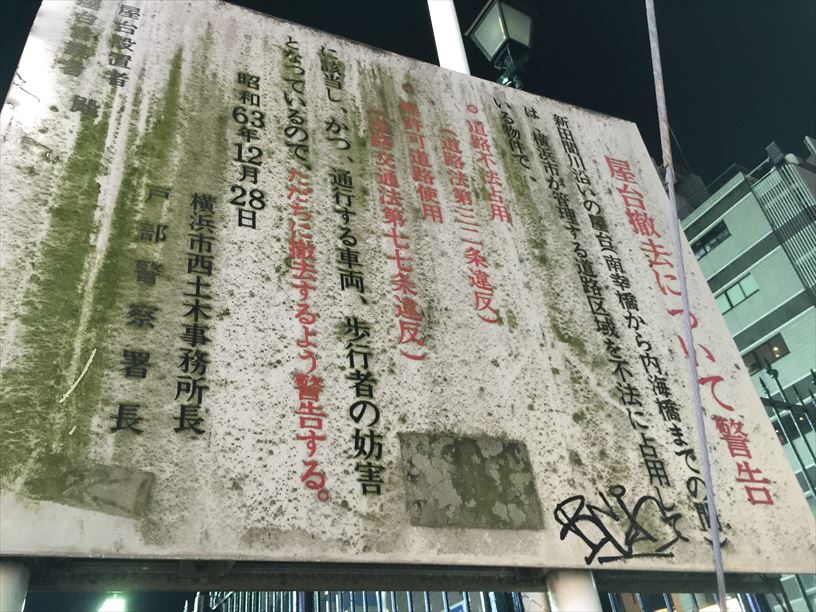 屋台撤去について警告
新田間川沿いの屋台(南幸橋から内海橋までの間)
は、横浜市が管理する道路区域を不法に占用して
いる物件で、
○道路不法占用
(道路法第三二条違反)
○無許可道路使用
(道路交通法第七七条違反)
に該当し、かつ、通行する車両、歩行者の妨害
となっているので、ただちに撤去するよう警告する。
昭和63年12月28日
横浜市西土木事務所長
戸部警察署長
屋台設置者
殿